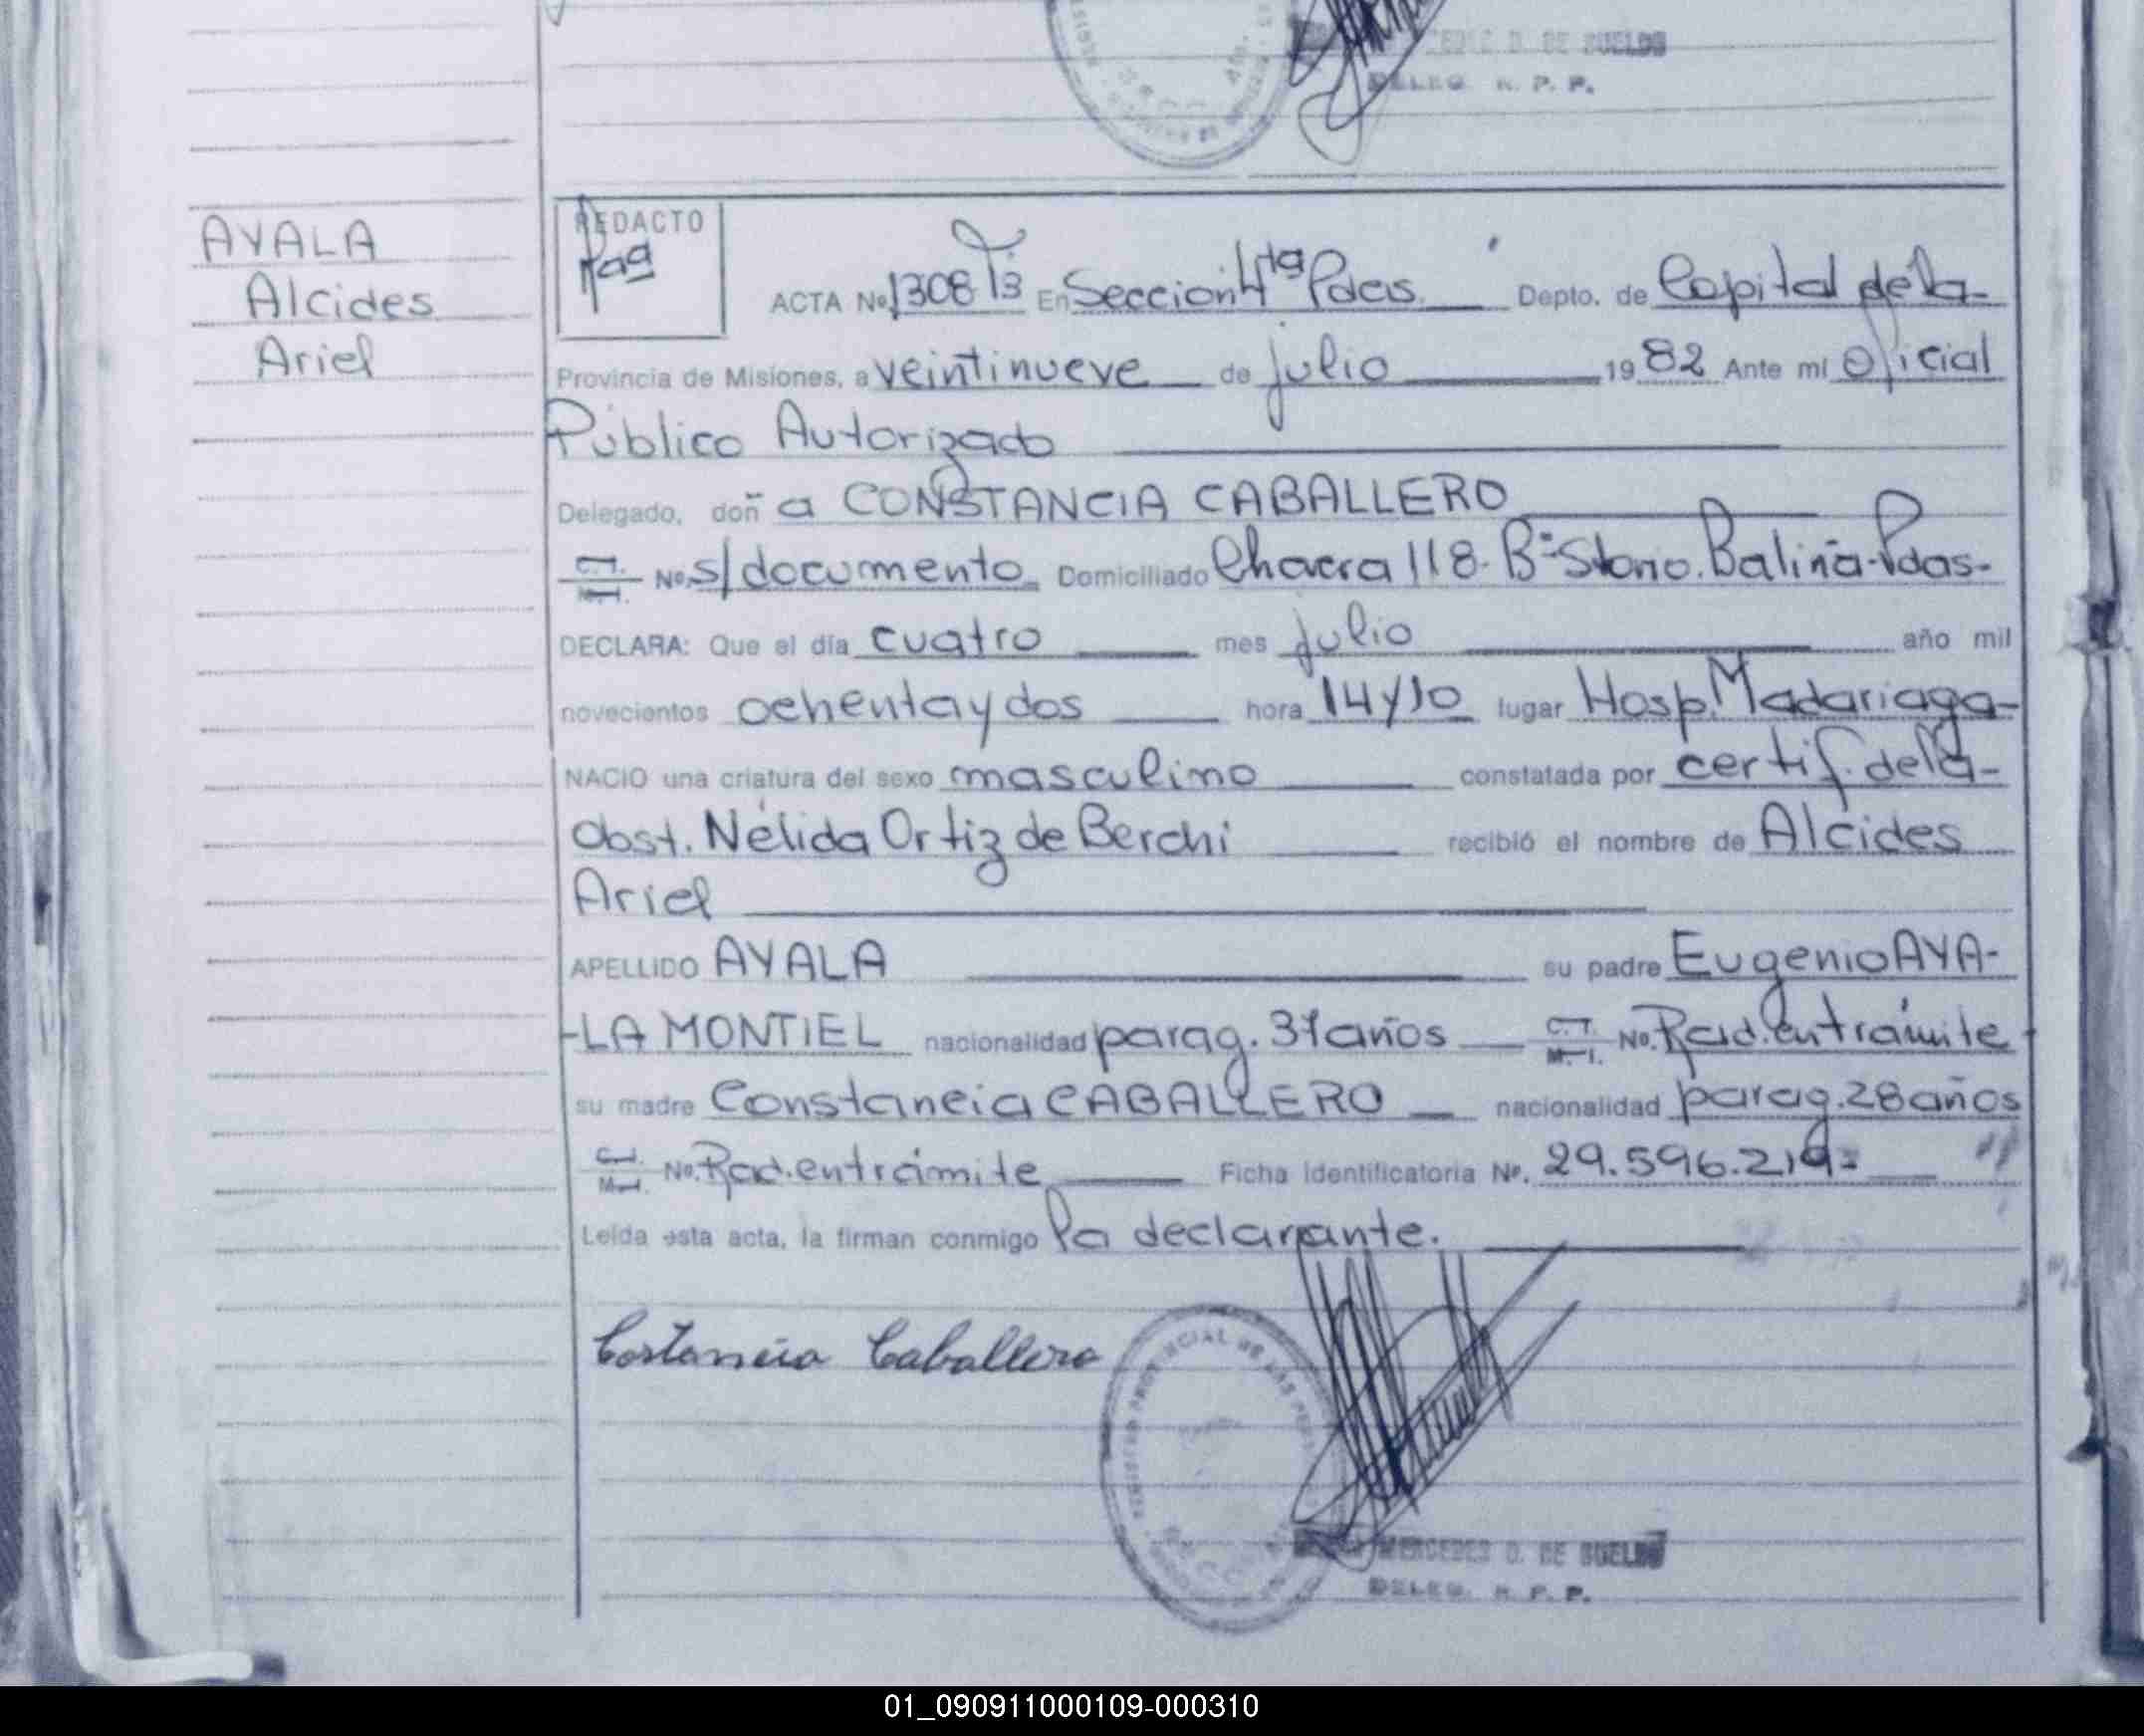 DE SUELDO
DELEG. R. P. P.
AYALA
Alcides
Ariel
REDACTO
ACTA Nº 1308 Tº3 En Seccion 4ta Pdas. Depto. de Capital de la-
Provincia de Misiones, a veintinueve de julio 1982 Ante mí Oficial
Público Autorizado
Delegado, doñ a CONSTANCIA CABALLERO
C.I. M.I. Nº. s/documento Domiciliado Chacra 118. Bº Stano. Baliña-Pdas-
DECLARA: Que el día cuatro mes julio año mil
novecientos ochenta y dos hora 14 y 10 lugar Hosp. Madariaga-
NACIO una criatura del sexo masculino constatada por certif. de la-
Obst. Nélida Ortiz de Berchi recibió el nombre de Alcides
Ariel
APELLIDO AYALA su padre Eugenio AYA-
-LA MONTIEL nacionalidad parag. 31 años C.I. M.I. Nº. Rad. en trámite
su madre Constancia CABALLERO nacionalidad parag. 28 años
C.I. M.I. Nº. Rad. en trámite Ficha Identificatoria Nº. 29.596.219-
Leída esta acta, la firman conmigo la declarante.
Costancia Caballero
REGISTRO PROVINCIAL DE LAS PERSONAS
MERCEDES D. DE SUELDO
DELEG. R. P. P.
01_090911000109-000310